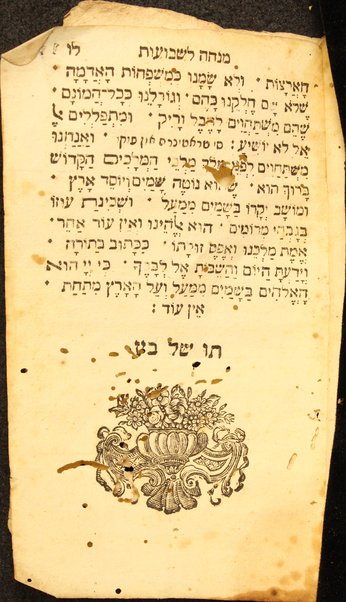 מנחה לשבועות לו
הָאֲרָצוֹת · וְלֹא שָׂמָנוּ כְּמִשְׁפְּחוֹת הָאֲדָמָה
שֶׁלֹּא שָׂם חֶלְקֵנוּ כָהֶם · וְגוֹרָלֵנוּ כְּכָל־הֲמוֹנָם
שֶׁהֵם מִשְׁתַּחֲוִים לְהֶבֶל וָרִיק · וּמִתְפַּלְלִים
אֶל לֹא יוֹשִׁיעַ : וַאֲנַחְנוּ
מִשְׁתַּחֲוִים לִפְנֵי מֶלֶךְ מַלְכֵי הַמְּלָכִים הַקָּדוֹשׁ
בָּרוּךְ הוּא · שֶׁהוּא נוֹטֶה שָׁמַיִם וְיוֹסֵד אָרֶץ ·
וּמוֹשַׁב יְקָרוֹ בַּשָּׁמַיִם מִמַּעַל · וּשְׁכִינַת עֻזּוֹ
בְּגָבְהֵי מְרוֹמִים · הוּא אֱלֹהֵינוּ וְאֵין עוֹד אַחֵר ·
אֱמֶת מַלְכֵּנוּ וְאֶפֶס זוּלָתוֹ · כַּכָּתוּב בַּתּוֹרָה
וְיָדַעְתָּ הַיּוֹם וַהֲשֵׁבֹתָ אֶל לְבָבֶךָ · כִּי יְיָ הוּא
הָאֱלֹהִים בַּשָּׁמַיִם מִמַּעַל וְעַל הָאָרֶץ מִתַּחַת
אֵין עוֹד :
תו של בע